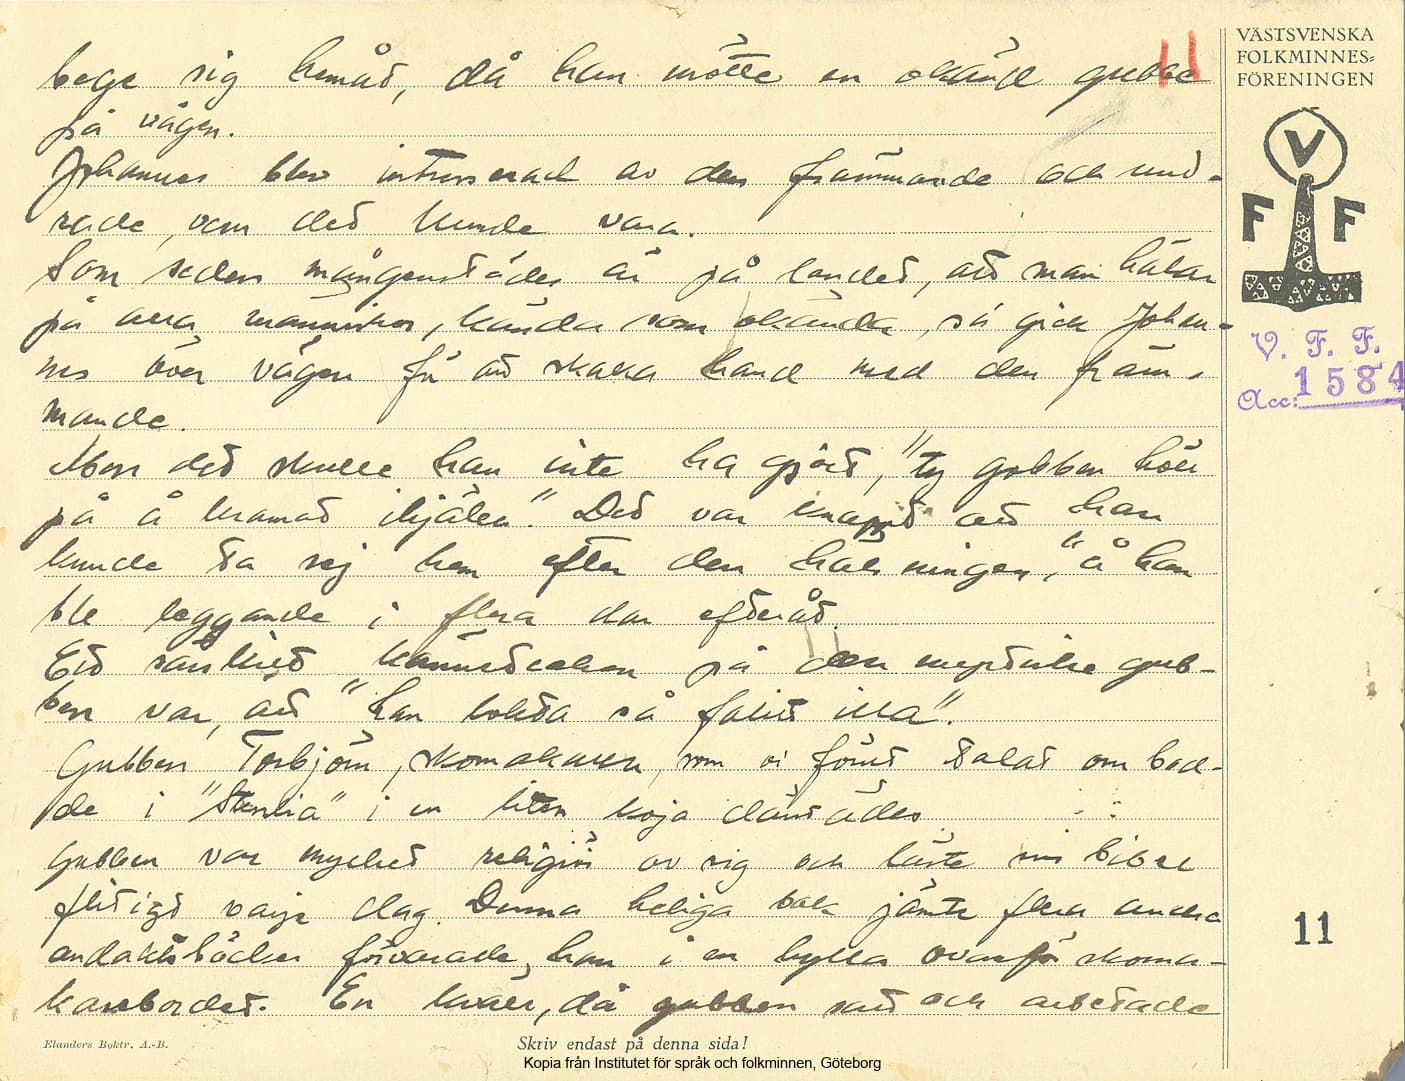 11
VÄSTSVENSKA
FOLKMINNES=
FÖRENINGEN
V
F F
V. F. F.
Acc: 1584
bege sig hemåt, då han mötte en okänd gubbe
på vägen.
Johannes blev intresserad av den främmande och und-
rade, vem det kunde vara.
Som seden mångenstädes är på landet, att man hälsar
på alla människor, kända som okända, så gick Johan-
nes över vägen för att skaka hand med den främ-
mande.
Men det skulle han inte ha gjort, "ty gubben höll
på å kramat ihjälen". Det var knappt att han
kunde ta sej hem efter den hälsningen, "å han
ble leggande i flera dar efteråt.
Ett särskilt kännetecken på den mystiske gub-
ben var, att "han lokta så falitt illa".
Gubben Torbjörn, skomakaren, som vi förut talat om bod-
de i "Stenlia" i en liten koja därstädes.
Gubben var mycket religiös av sig och läste sin bibel
flitigt varje dag. Denna heliga bok jämte flera andra
andaktsböcker förvarade han i en hylla ovanför skoma-
karebordet. En kväll, då gubben satt och arbetade
11
Elanders Boktr. A.-B.
Skriv endast på denna sida!
Kopia från Institutet för språk och folkminnen, Göteborg